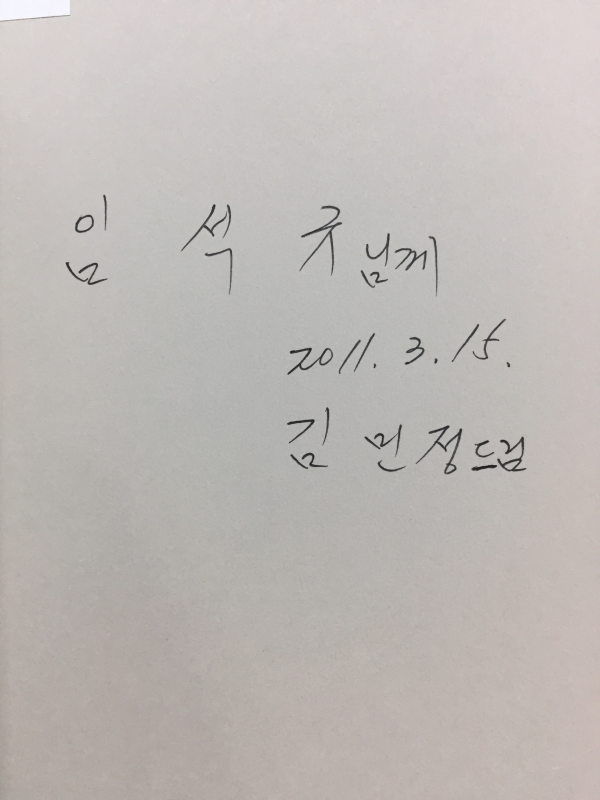 임 석 규 님께
2011. 3. 15.
김 민정 드림